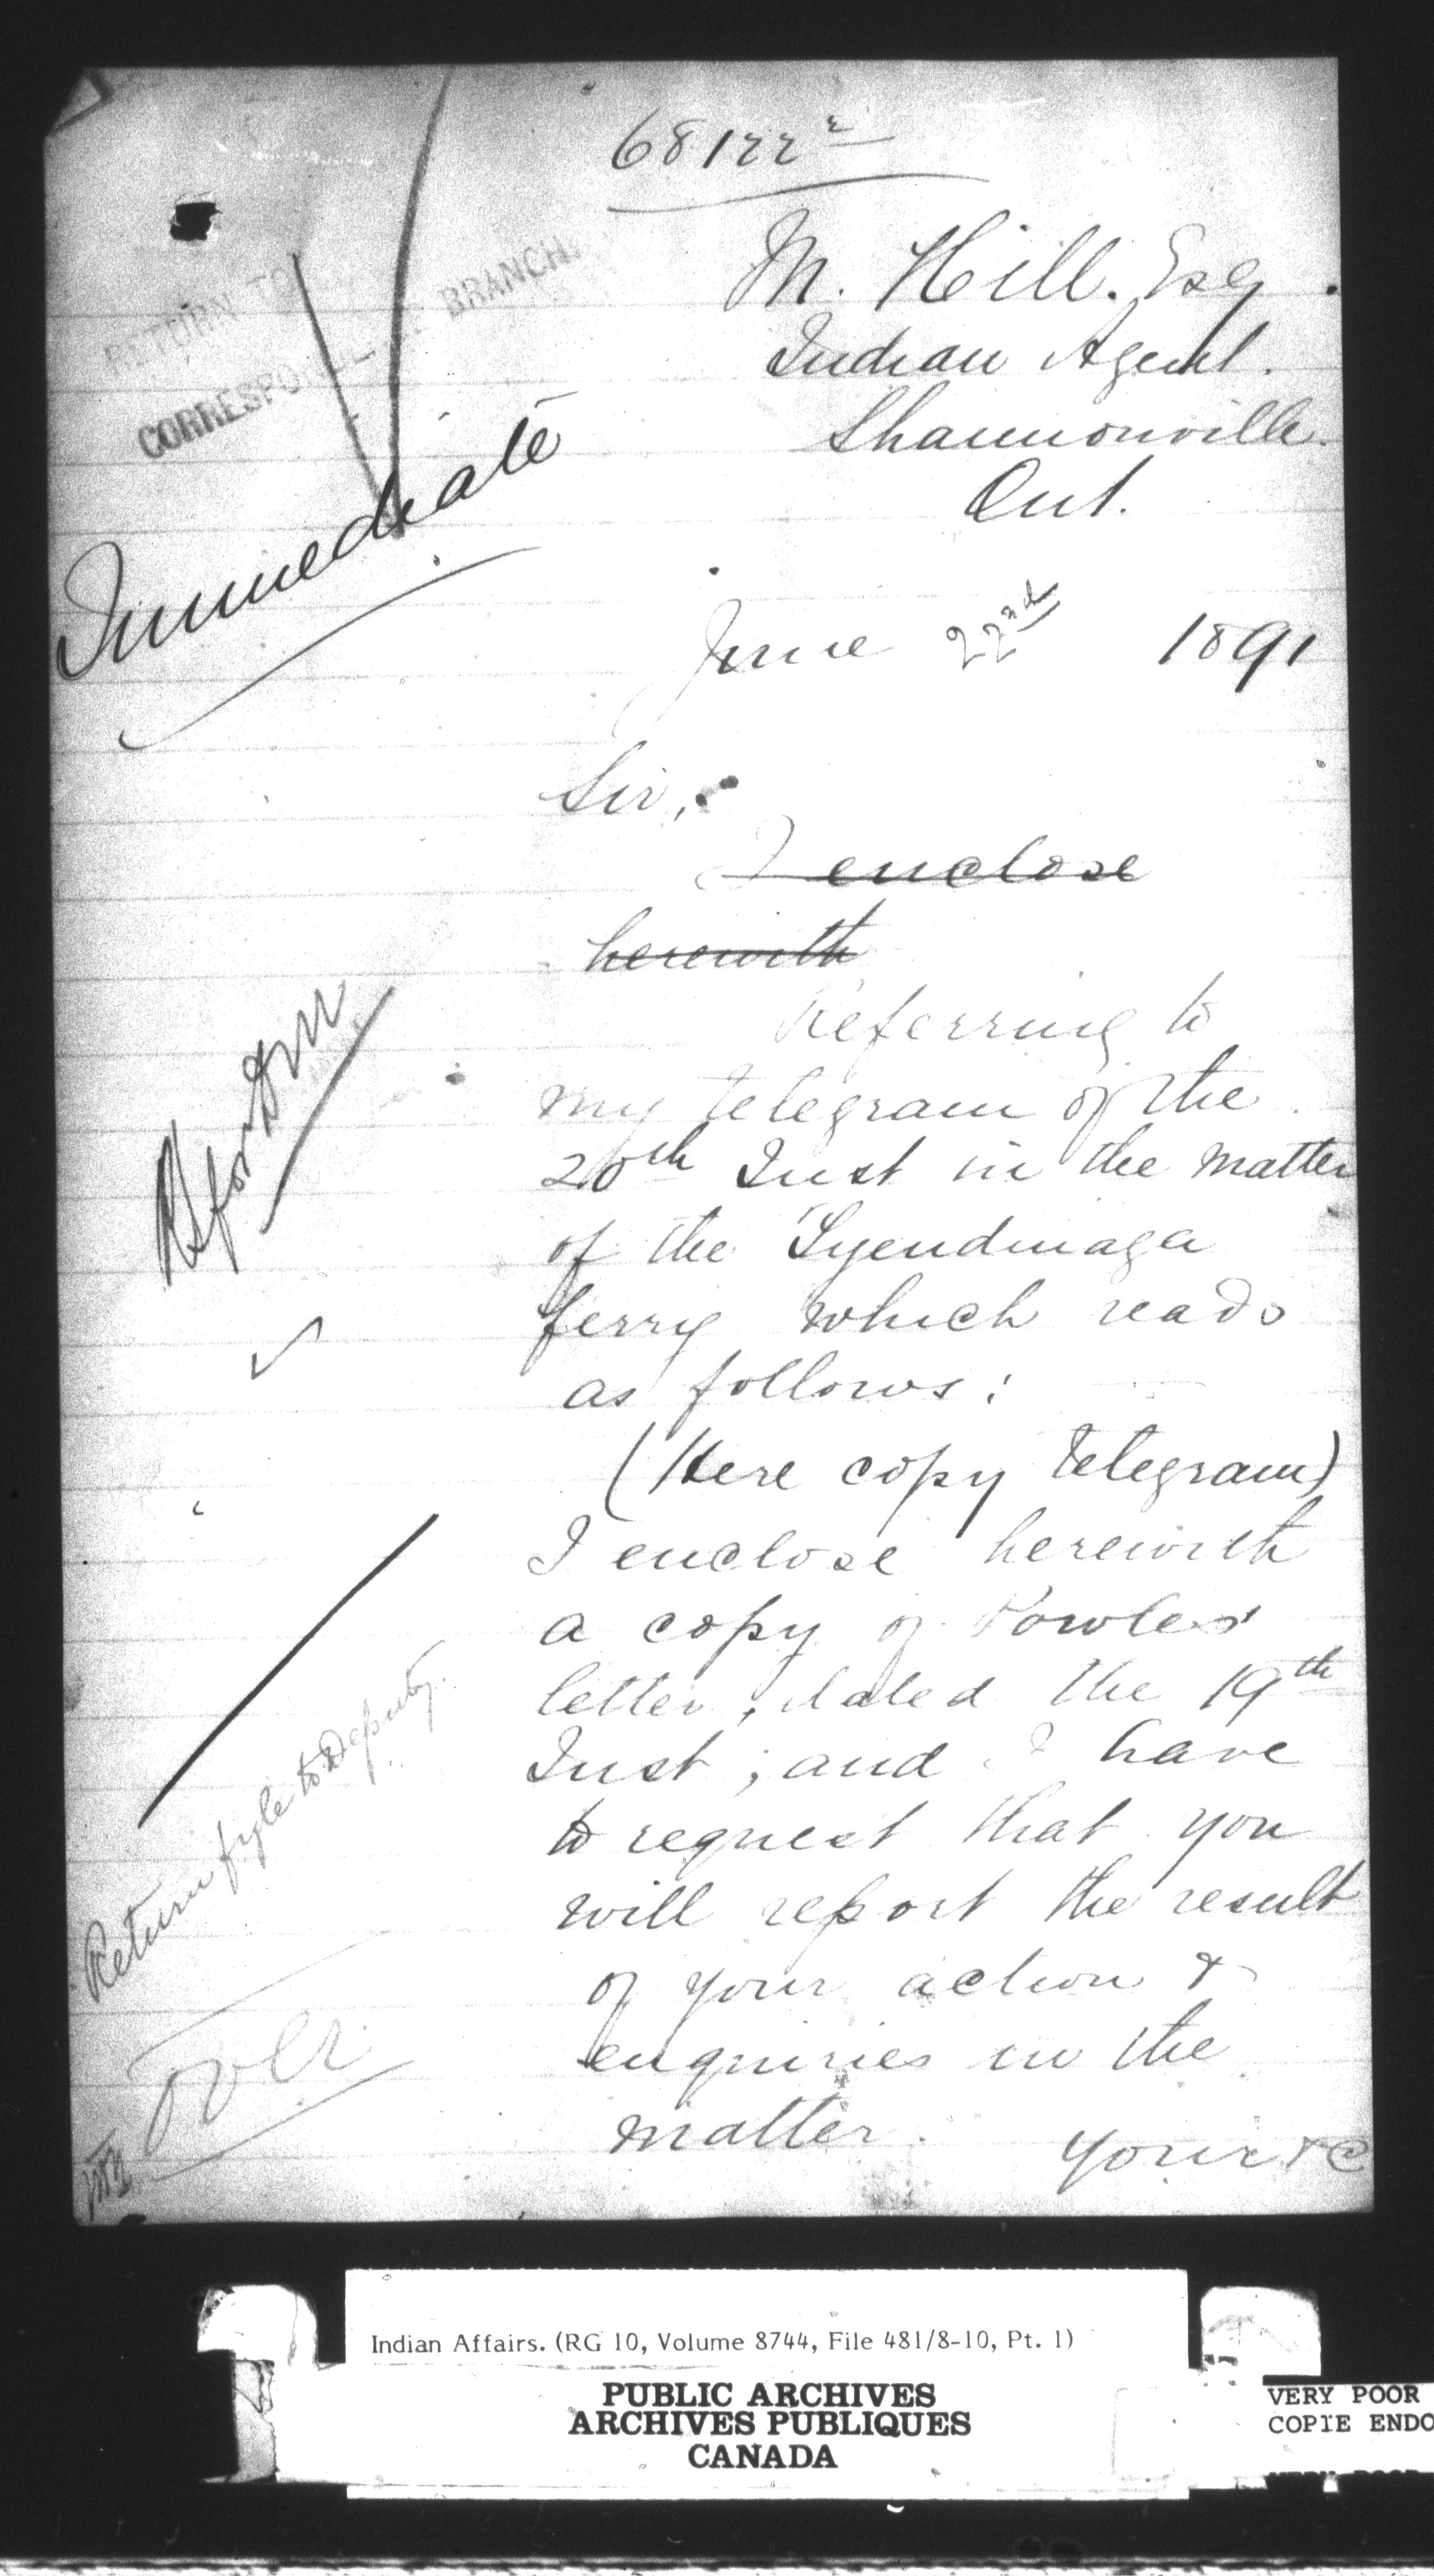 68122²
M. Hill. Esq.
Indian Agent.
Shannonville.
Ont.
RETURN TO
CORRESPONDENCE BRANCH.
Immediate
June 22nd 1891
Sir,
I enclose
herewith
Referring to
my telegram of the
20th Inst in the matter
of the Tyendinaga
ferry which reads
as follows:
(Here copy telegram)
I enclose herewith
a copy of Powles'
letter, dated the 19th
Inst; and I have
to request that you
will report the result
of your action &
enquiries in the
matter.
Yours &c
Return fyle to Deputy.
Over
Indian Affairs. (RG 10, Volume 8744, File 481/8-10, Pt. 1)
PUBLIC ARCHIVES
ARCHIVES PUBLIQUES
CANADA
VERY POOR
COPIE ENDO